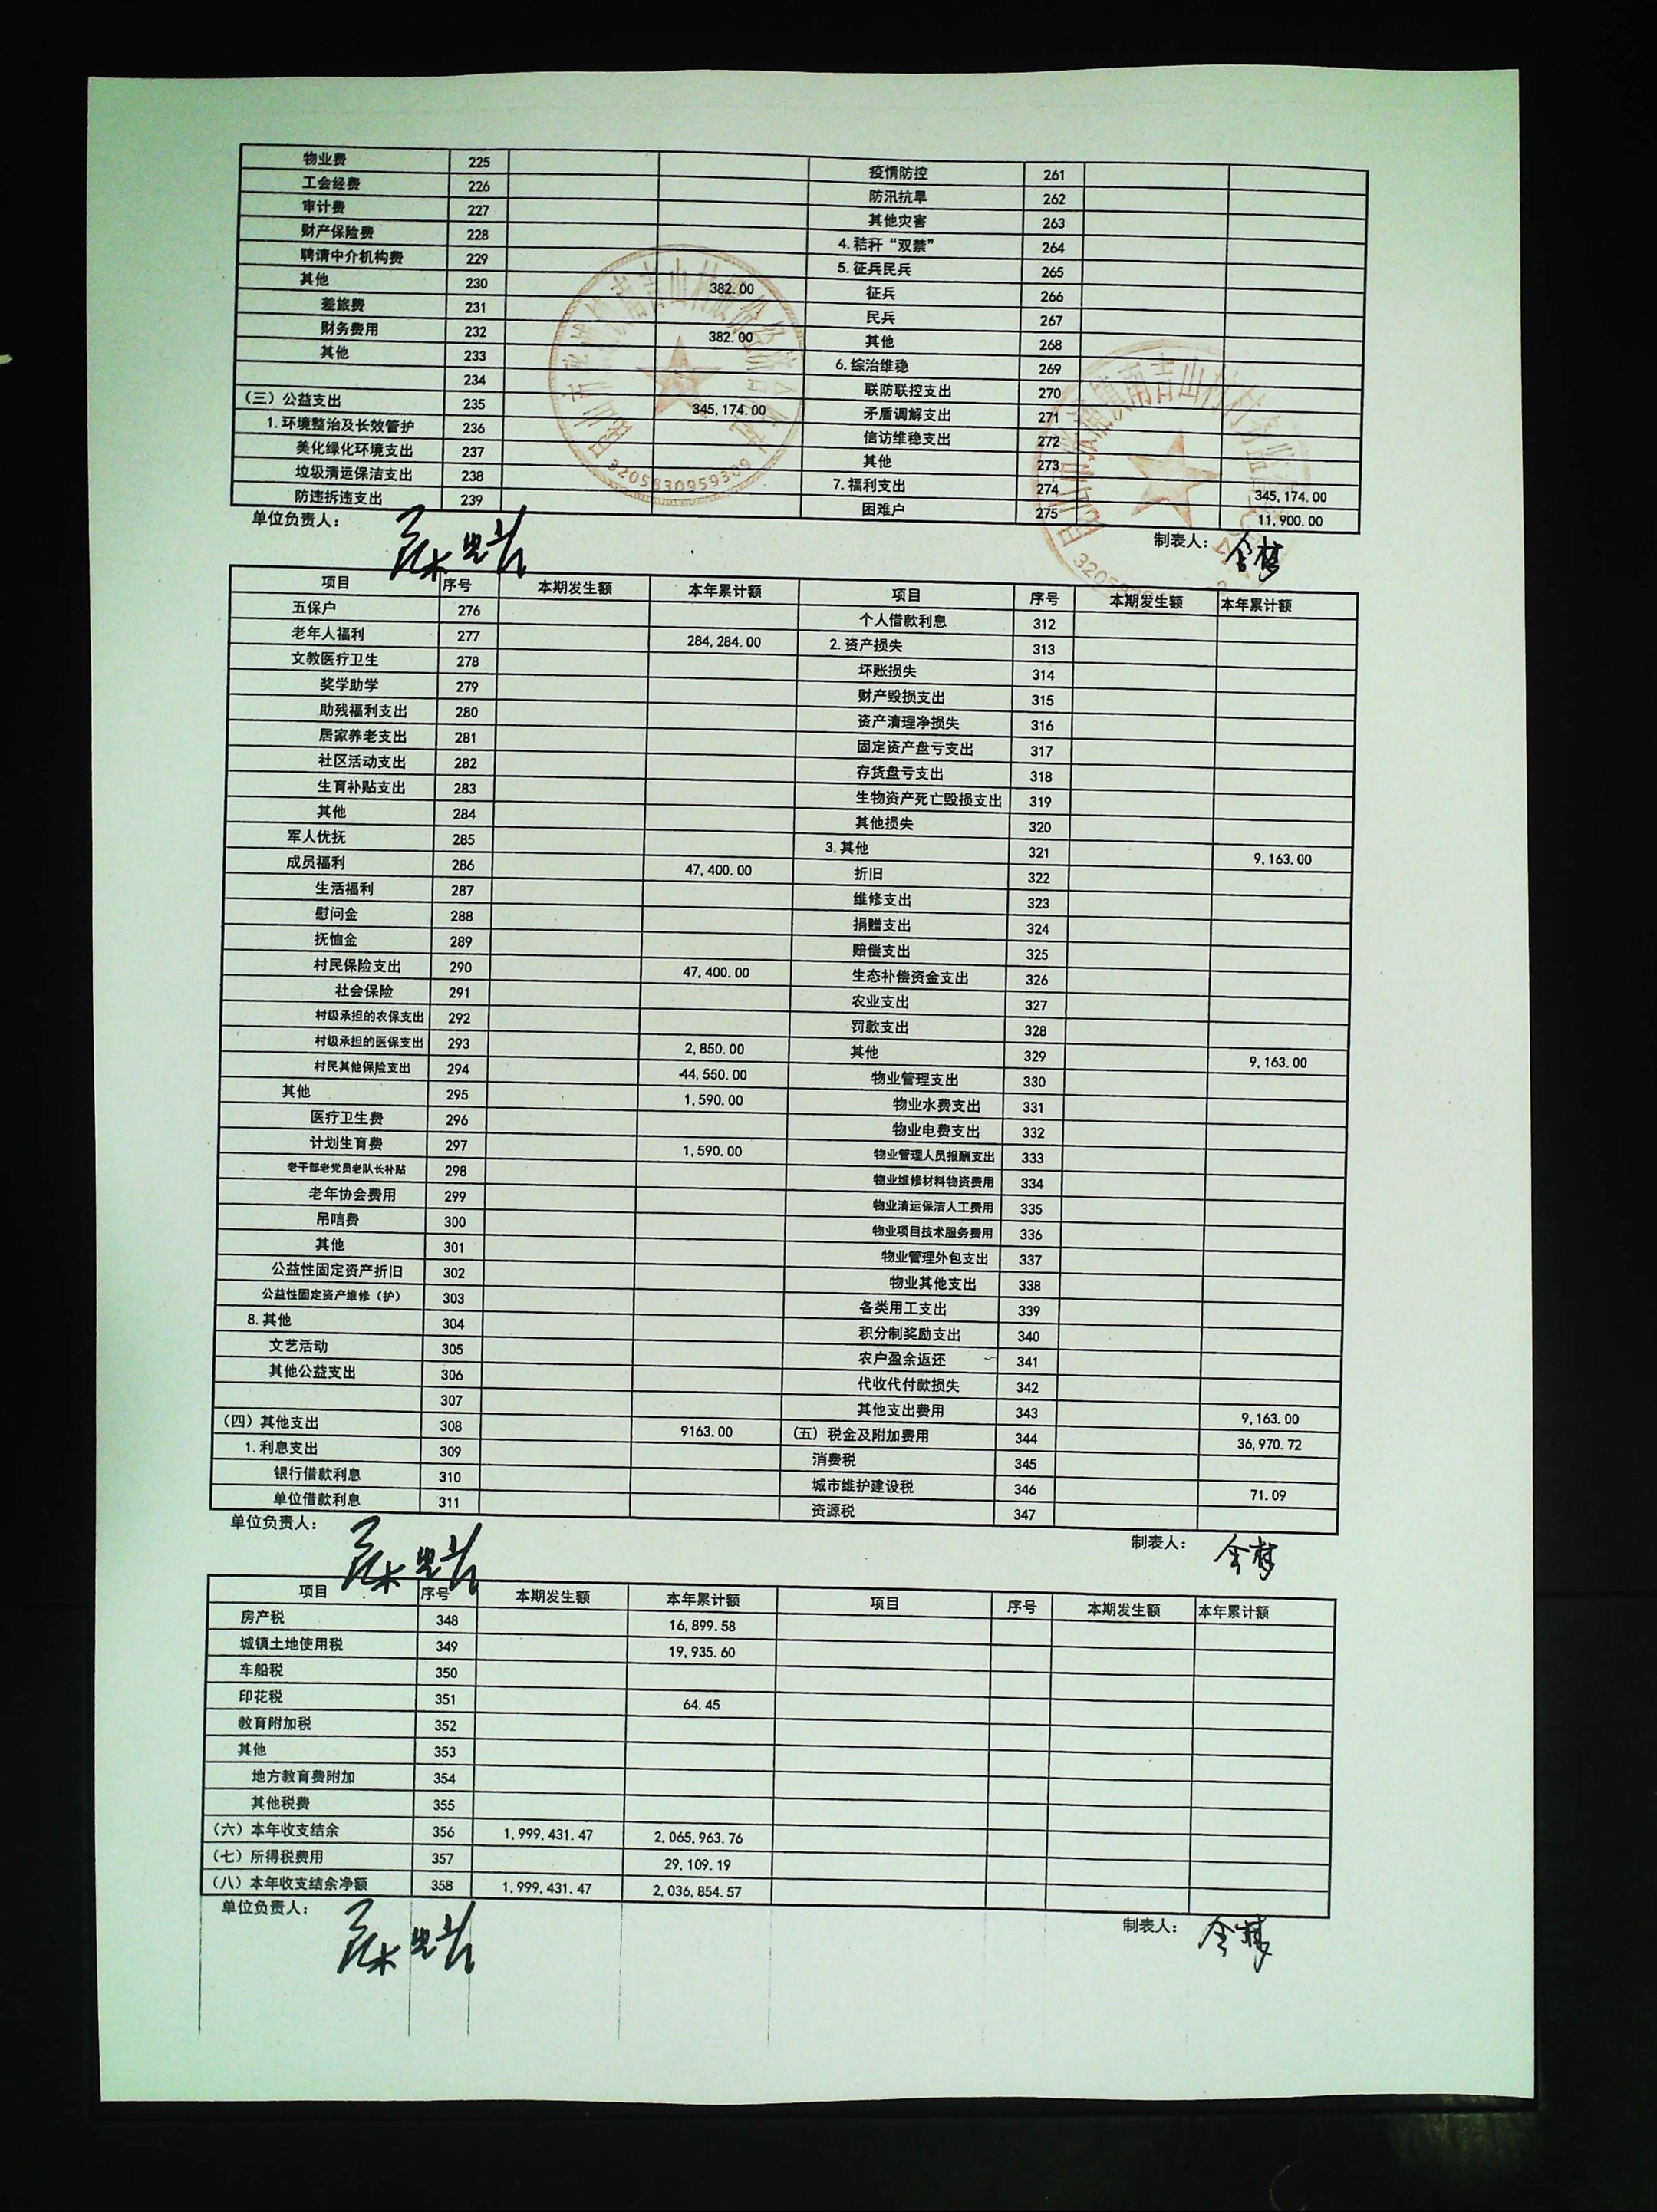 物业费 225 疫情防控 261
工会经费 226 防汛抗旱 262
审计费 227 其他灾害 263
财产保险费 228 4.秸秆“双禁” 264
聘请中介机构费 229 5.征兵民兵 265
其他 230 382.00 征兵 266
差旅费 231 民兵 267
财务费用 232 382.00 其他 268
其他 233 6.综治维稳 269
234 联防联控支出 270
（三）公益支出 235 345,174.00 矛盾调解支出 271
1.环境整治及长效管护 236 信访维稳支出 272
美化绿化环境支出 237 其他 273
垃圾清运保洁支出 238 7.福利支出 274 345,174.00
防违拆违支出 239 困难户 275 11,900.00
3205830959309
单位负责人： 制表人：
项目 序号 本期发生额 本年累计额 项目 序号 本期发生额 本年累计额
五保户 276 个人借款利息 312
老年人福利 277 284,284.00 2.资产损失 313
文教医疗卫生 278 坏账损失 314
奖学助学 279 财产毁损支出 315
助残福利支出 280 资产清理净损失 316
居家养老支出 281 固定资产盘亏支出 317
社区活动支出 282 存货盘亏支出 318
生育补贴支出 283 生物资产死亡毁损支出 319
其他 284 其他损失 320
军人优抚 285 3.其他 321 9,163.00
成员福利 286 47,400.00 折旧 322
生活福利 287 维修支出 323
慰问金 288 捐赠支出 324
抚恤金 289 赔偿支出 325
村民保险支出 290 47,400.00 生态补偿资金支出 326
社会保险 291 农业支出 327
村级承担的农保支出 292 罚款支出 328
村级承担的医保支出 293 2,850.00 其他 329 9,163.00
村民其他保险支出 294 44,550.00 物业管理支出 330
其他 295 1,590.00 物业水费支出 331
医疗卫生费 296 物业电费支出 332
计划生育费 297 1,590.00 物业管理人员报酬支出 333
老干部老党员老队长补贴 298 物业维修材料物资费用 334
老年协会费用 299 物业清运保洁人工费用 335
吊唁费 300 物业项目技术服务费用 336
其他 301 物业管理外包支出 337
公益性固定资产折旧 302 物业其他支出 338
公益性固定资产维修（护） 303 各类用工支出 339
8.其他 304 积分制奖励支出 340
文艺活动 305 农户盈余返还 341
其他公益支出 306 代收代付款损失 342
307 其他支出费用 343 9,163.00
（四）其他支出 308 9163.00 （五）税金及附加费用 344 36,970.72
1.利息支出 309 消费税 345
银行借款利息 310 城市维护建设税 346 71.09
单位借款利息 311 资源税 347
单位负责人： 制表人：
项目 序号 本期发生额 本年累计额 项目 序号 本期发生额 本年累计额
房产税 348 16,899.58
城镇土地使用税 349 19,935.60
车船税 350
印花税 351 64.45
教育附加税 352
其他 353
地方教育费附加 354
其他税费 355
（六）本年收支结余 356 1,999,431.47 2,065,963.76
（七）所得税费用 357 29,109.19
（八）本年收支结余净额 358 1,999,431.47 2,036,854.57
单位负责人： 制表人：